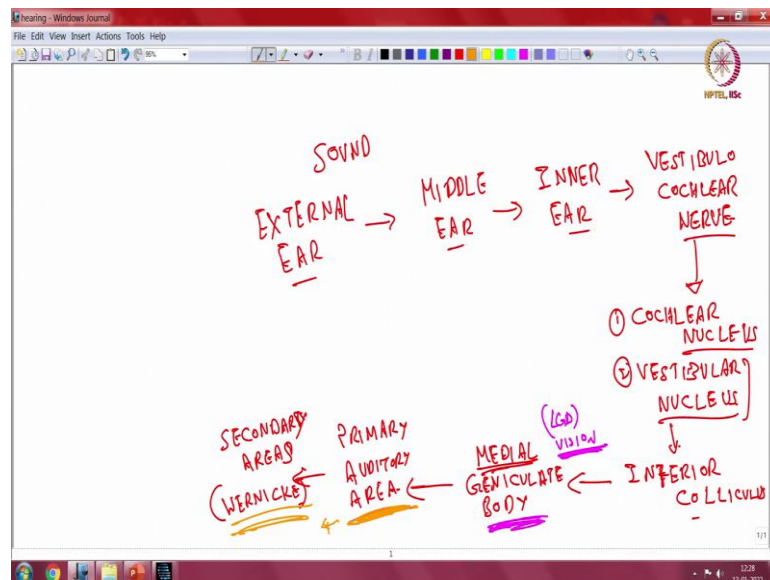 hearing - Windows Journal
File Edit View Insert Actions Tools Help
NPTEL, IISc
SOUND
EXTERNAL
EAR
MIDDLE
EAR
INNER
EAR
VESTIBULO
COCHLEAR
NERVE
① COCHLEAR
NUCLEUS
② VESTIBULAR
NUCLEUS
INFERIOR
COLLICULUS
(LGB)
VISION
MEDIAL
GENICULATE
BODY
PRIMARY
AUDITORY
AREA
SECONDARY
AREAS
(WERNICKE)
1/1
1
12:28